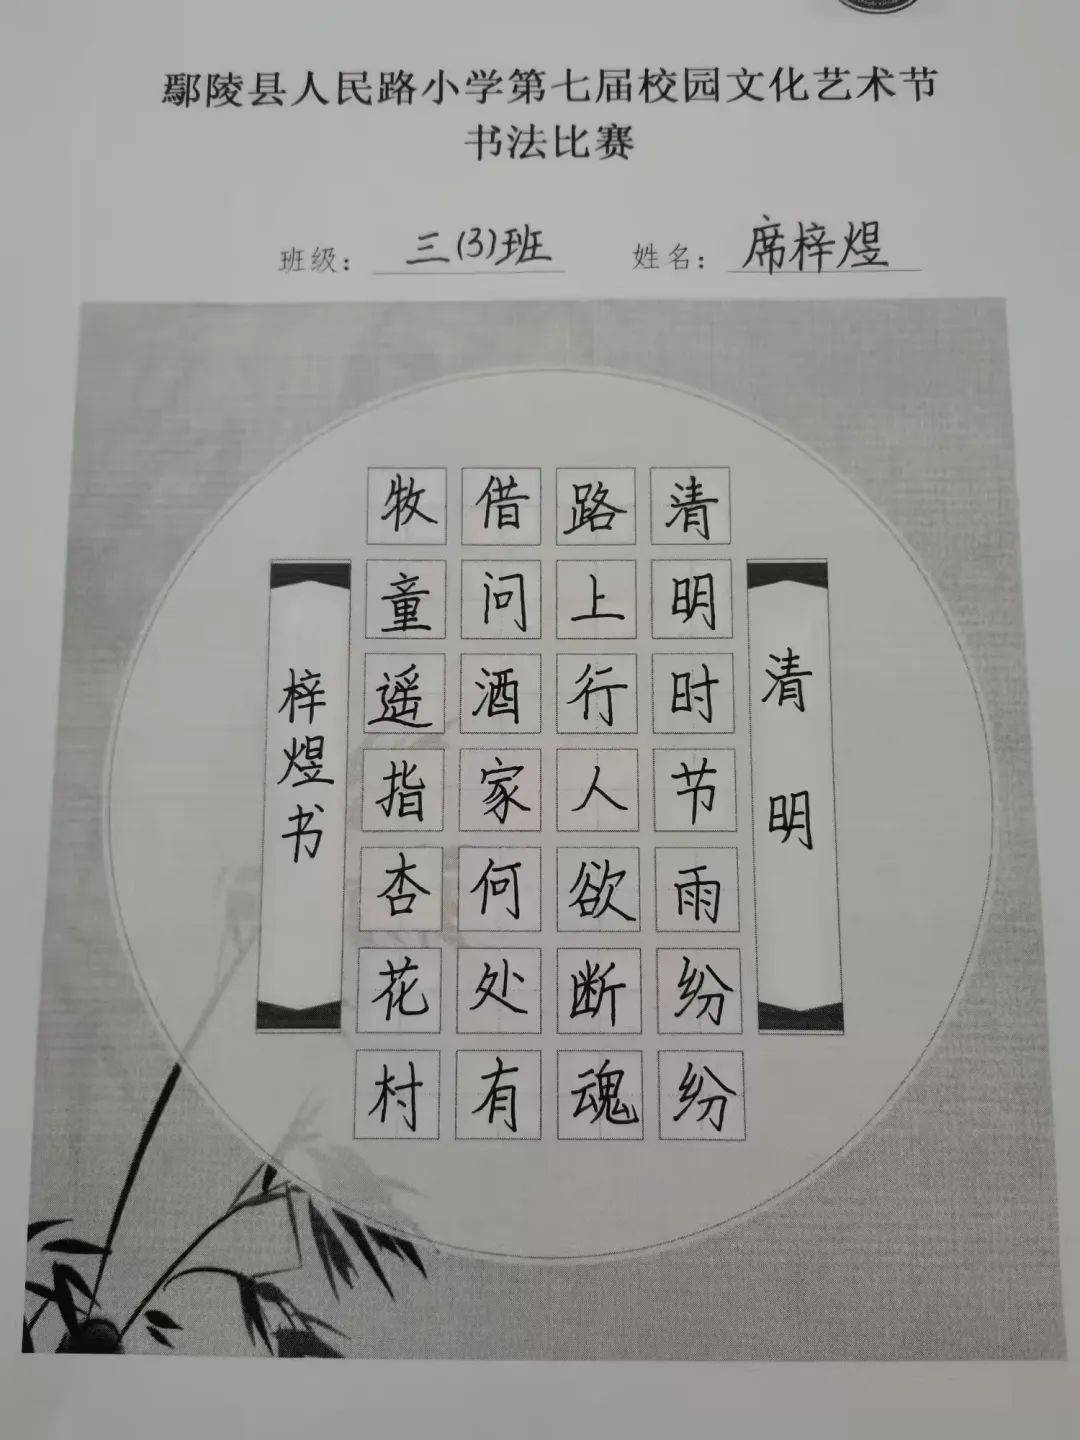 鄢陵县人民路小学第七届校园文化艺术节
书法比赛
班级：三(3)班 姓名：席梓煜
清明
清明时节雨纷纷
路上行人欲断魂
借问酒家何处有
牧童遥指杏花村
梓煜书